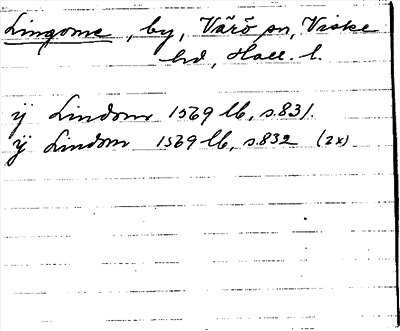 Lingome, by, Värö sn, Viske
hd, Hall. l.
ÿ Lindom 1569 lb, s.831.
ÿ Lindom 1569 lb, s.832 (2x)